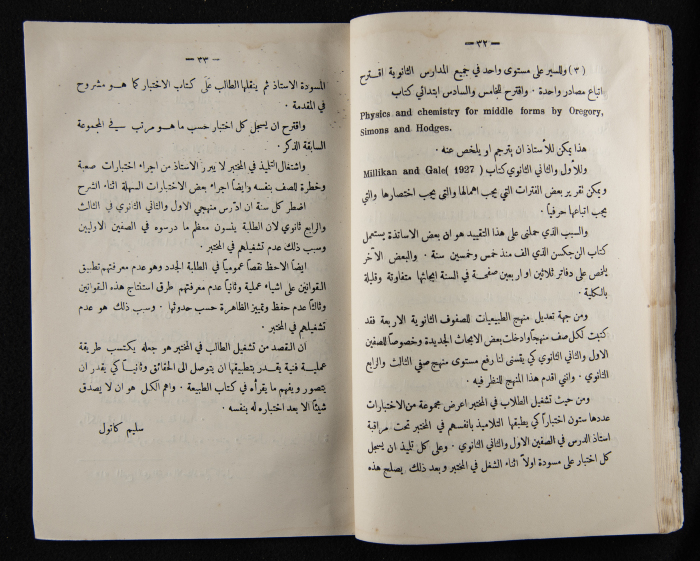 — ٣٢ —
(٣) وللسير على مستوى واحد في جميع المدارس الثانوية اقترح
اتباع مصادر واحدة . واقترح للخامس والسادس ابتدائي كتاب
Physics and chemistry for middle forms by Oregory,
Simons and Hodges.
هذا يمكن للأستاذ ان يترجم او يلخص عنه .
وللاول والثاني الثانوي كتاب ( Millikan and Gale( 1927
ويمكن تقرير بعض الفقرات التي يجب اهمالها والتي يجب اختصارها والتي
يجب اتباعها حرفياً .
والسبب الذي حملني على هذا التقييد هو ان بعض الاساتذة يستعمل
كتاب الن جكسن الذي الف منذ خمس وخمسين سنة . والبعض الآخر
يلخص على دفاتر ثلاثين او اربعين صفحة في السنة ابحاثها متفاوتة وقليلة
بالكلية .
ومن جهة تعديل منهج الطبيعيات للصفوف الثانوية الاربعة فقد
كتبت لكل صف منهجاً وادخلت بعض الابحاث الجديدة وخصوصاً للصفين
الاول والثاني الثانوي كي يتسنى لنا رفع مستوى منهج صفي الثالث والرابع
الثانوي . وانني اقدم هذا المنهج للنظر فيه .
ومن حيث تشغيل الطلاب في المختبر اعرض مجموعة من الاختبارات
عددها ستون اختباراً كي يطبقها التلاميذ بانفسهم في المختبر تحت مراقبة
استاذ الدرس في الصفين الاول والثاني الثانوي . وعلى كل تلميذ ان يسجل
كل اختبار على مسودة اولاً اثناء الشغل في المختبر وبعد ذلك يصلح هذه
— ٣٣ —
المسودة الاستاذ ثم ينقلها الطالب على كتاب الاختبار كما هو مشروح
في المقدمة .
واقترح ان يسجل كل اختبار حسب ما هو مرتب في المجموعة
السابقة الذكر .
واشتغال التلميذ في المختبر لا يبرر الاستاذ من اجراء اختبارات صعبة
وخطرة للصف بنفسه وايضاً اجراء بعض الاختبارات السهلة اثناء الشرح
اضطر كل سنة ان ادرس منهجي الاول والثاني الثانوي في الثالث
والرابع ثانوي لان الطلبة ينسون معظم ما درسوه في الصفين الاوليين
وسبب ذلك عدم تشغيلهم في المختبر .
ايضاً الاحظ نقصاً عمومياً في الطلبة الجدد وهو عدم معرفتهم تطبيق
القوانين على اشياء عملية وثانياً عدم معرفتهم طرق استنتاج هذه القوانين
وثالثاً عدم حفظ وتمييز الظاهرة حسب حدوثها . وسبب ذلك هو عدم
تشغيلهم في المختبر .
ان القصد من تشغيل الطالب في المختبر هو جعله يكتسب طريقة
عملية فنية يقدر بتطبيقها ان يتوصل الى الحقائق وثانياً كي يقدر ان
يتصور ويفهم ما يقرأه في كتاب الطبيعة . واهم الكل هو ان لا يصدق
شيئاً الا بعد اختباره له بنفسه .
سليم كاتول